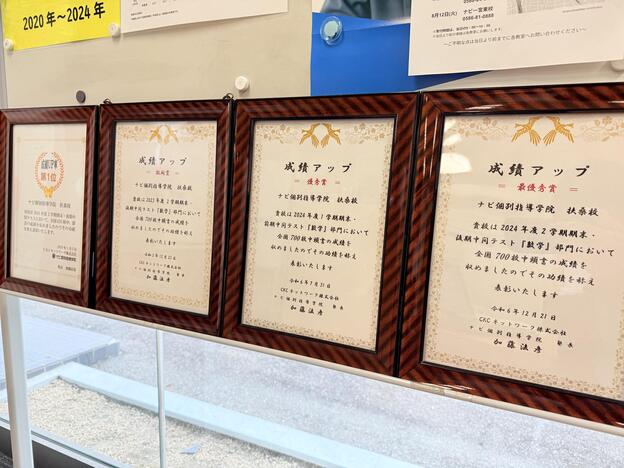 2020年～2024年
8月12日(火)
ナビ一宮東校
0586-81-0888
～ご不明な点は当日より前までに各教室へお問い合わせください～
成績UP率
第1位
ナビ個別指導学院 扶桑校
成績アップ
＝ 優秀賞 ＝
ナビ個別指導学院 扶桑校
貴校は2023年度2学期期末・
後期中間テスト「数学」部門において
全国700校中
の成績を
収めましたのでその功績を称え
表彰いたします
令和5年12月22日
CKCネットワーク株式会社
ナビ個別指導学院 塾長
加藤法彦
成績アップ
＝ 優秀賞 ＝
ナビ個別指導学院 扶桑校
貴校は2024年度1学期期末・
前期中間テスト「数学」部門において
全国700校中
の成績を
収めましたのでその功績を称え
表彰いたします
令和6年7月31日
CKCネットワーク株式会社
ナビ個別指導学院 塾長
加藤法彦
成績アップ
＝ 最優秀賞 ＝
ナビ個別指導学院 扶桑校
貴校は2024年度2学期期末・
後期中間テスト「数学」部門において
全国700校中
の成績を
収めましたのでその功績を称え
表彰いたします
令和6年12月21日
CKCネットワーク株式会社
ナビ個別指導学院 塾長
加藤法彦